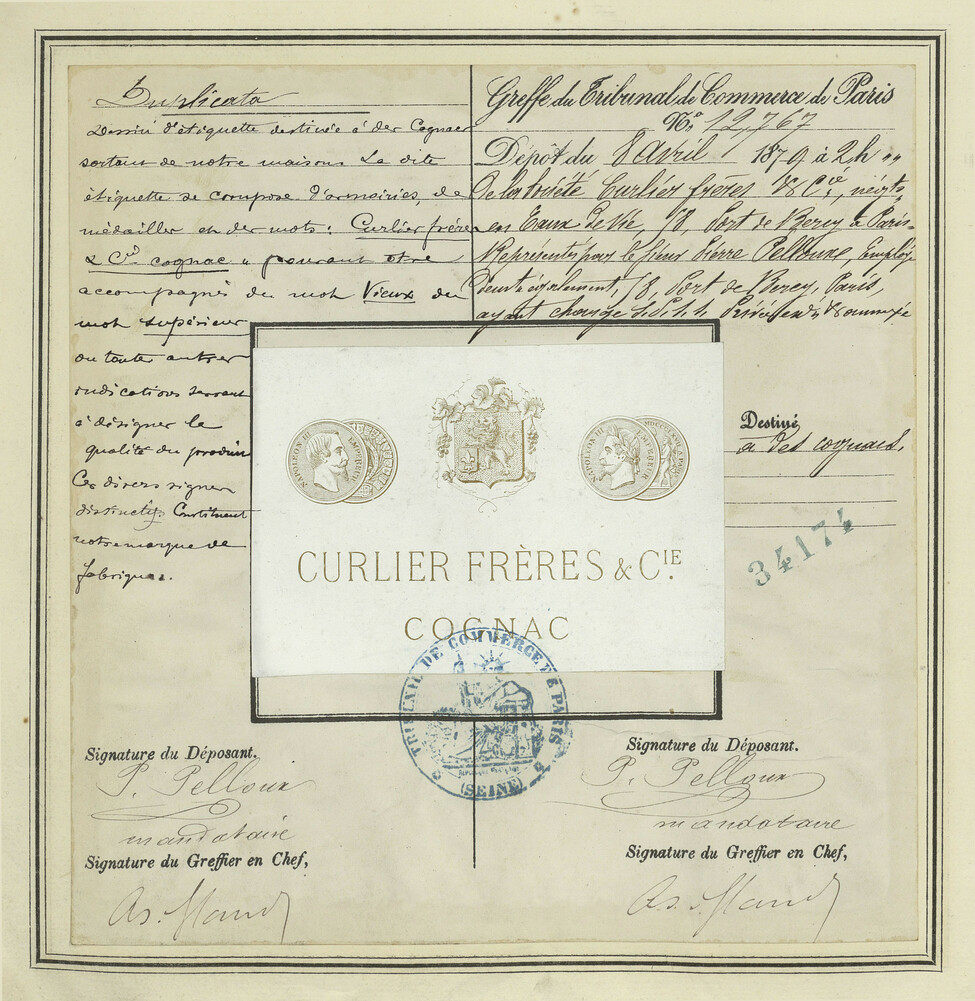 Duplicata
Dessin d'étiquette destinée à des Cognacs
sortant de notre maison. La dite
étiquette se compose d'armoiries, de
médailles et des mots: Curlier frères
& Cie cognac " pouvant être
accompagnés du mot Vieux du
mot supérieur
ou toute autres
indications servant
à désigner la
qualité du produit
Ces divers signes
distinctifs Constituent
notre marque de
fabrique.
Greffe du Tribunal de Commerce de Paris
No. 12,767
Dépôt du 8 avril 1879 à 2h "
De la Société Curlier frères & Cie, négts
en Eaux de Vie, 58, Port de Bercy à Paris
Représentés par le sieur Pierre Pelloux, Employé
demt également, 58, Port de Bercy, Paris,
ayant charge
Destiné
à des cognacs.
34174
NAPOLEON III EMPEREUR
NAPOLEON III EMPEREUR
CURLIER FRÈRES & CIE.
COGNAC
TRIBUNAL DE COMMERCE DE PARIS
(SEINE)
Signature du Déposant.
P. Pelloux
mandataire
Signature du Greffier en Chef,
Signature du Déposant.
P. Pelloux
mandataire
Signature du Greffier en Chef,